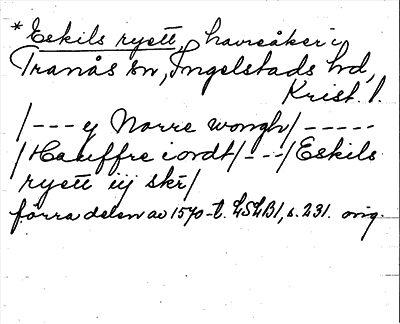 * Eskils ryett, havreåker i
Tranås sn, Ingelstads hd,
Krist. l.
/--- y Norre wongh/-----
/Hauffre iordt/---/Eskils
ryett iij skr/
förra delen av 1570-t. LSLB1, s. 231. orig.